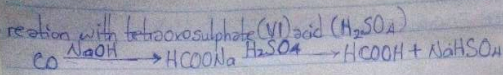 reation with tetraoxosulphate(VI) acid (H₂SO₄)
CO NaOH → HCOONa H₂SO₄ → HCOOH + NaHSO₄